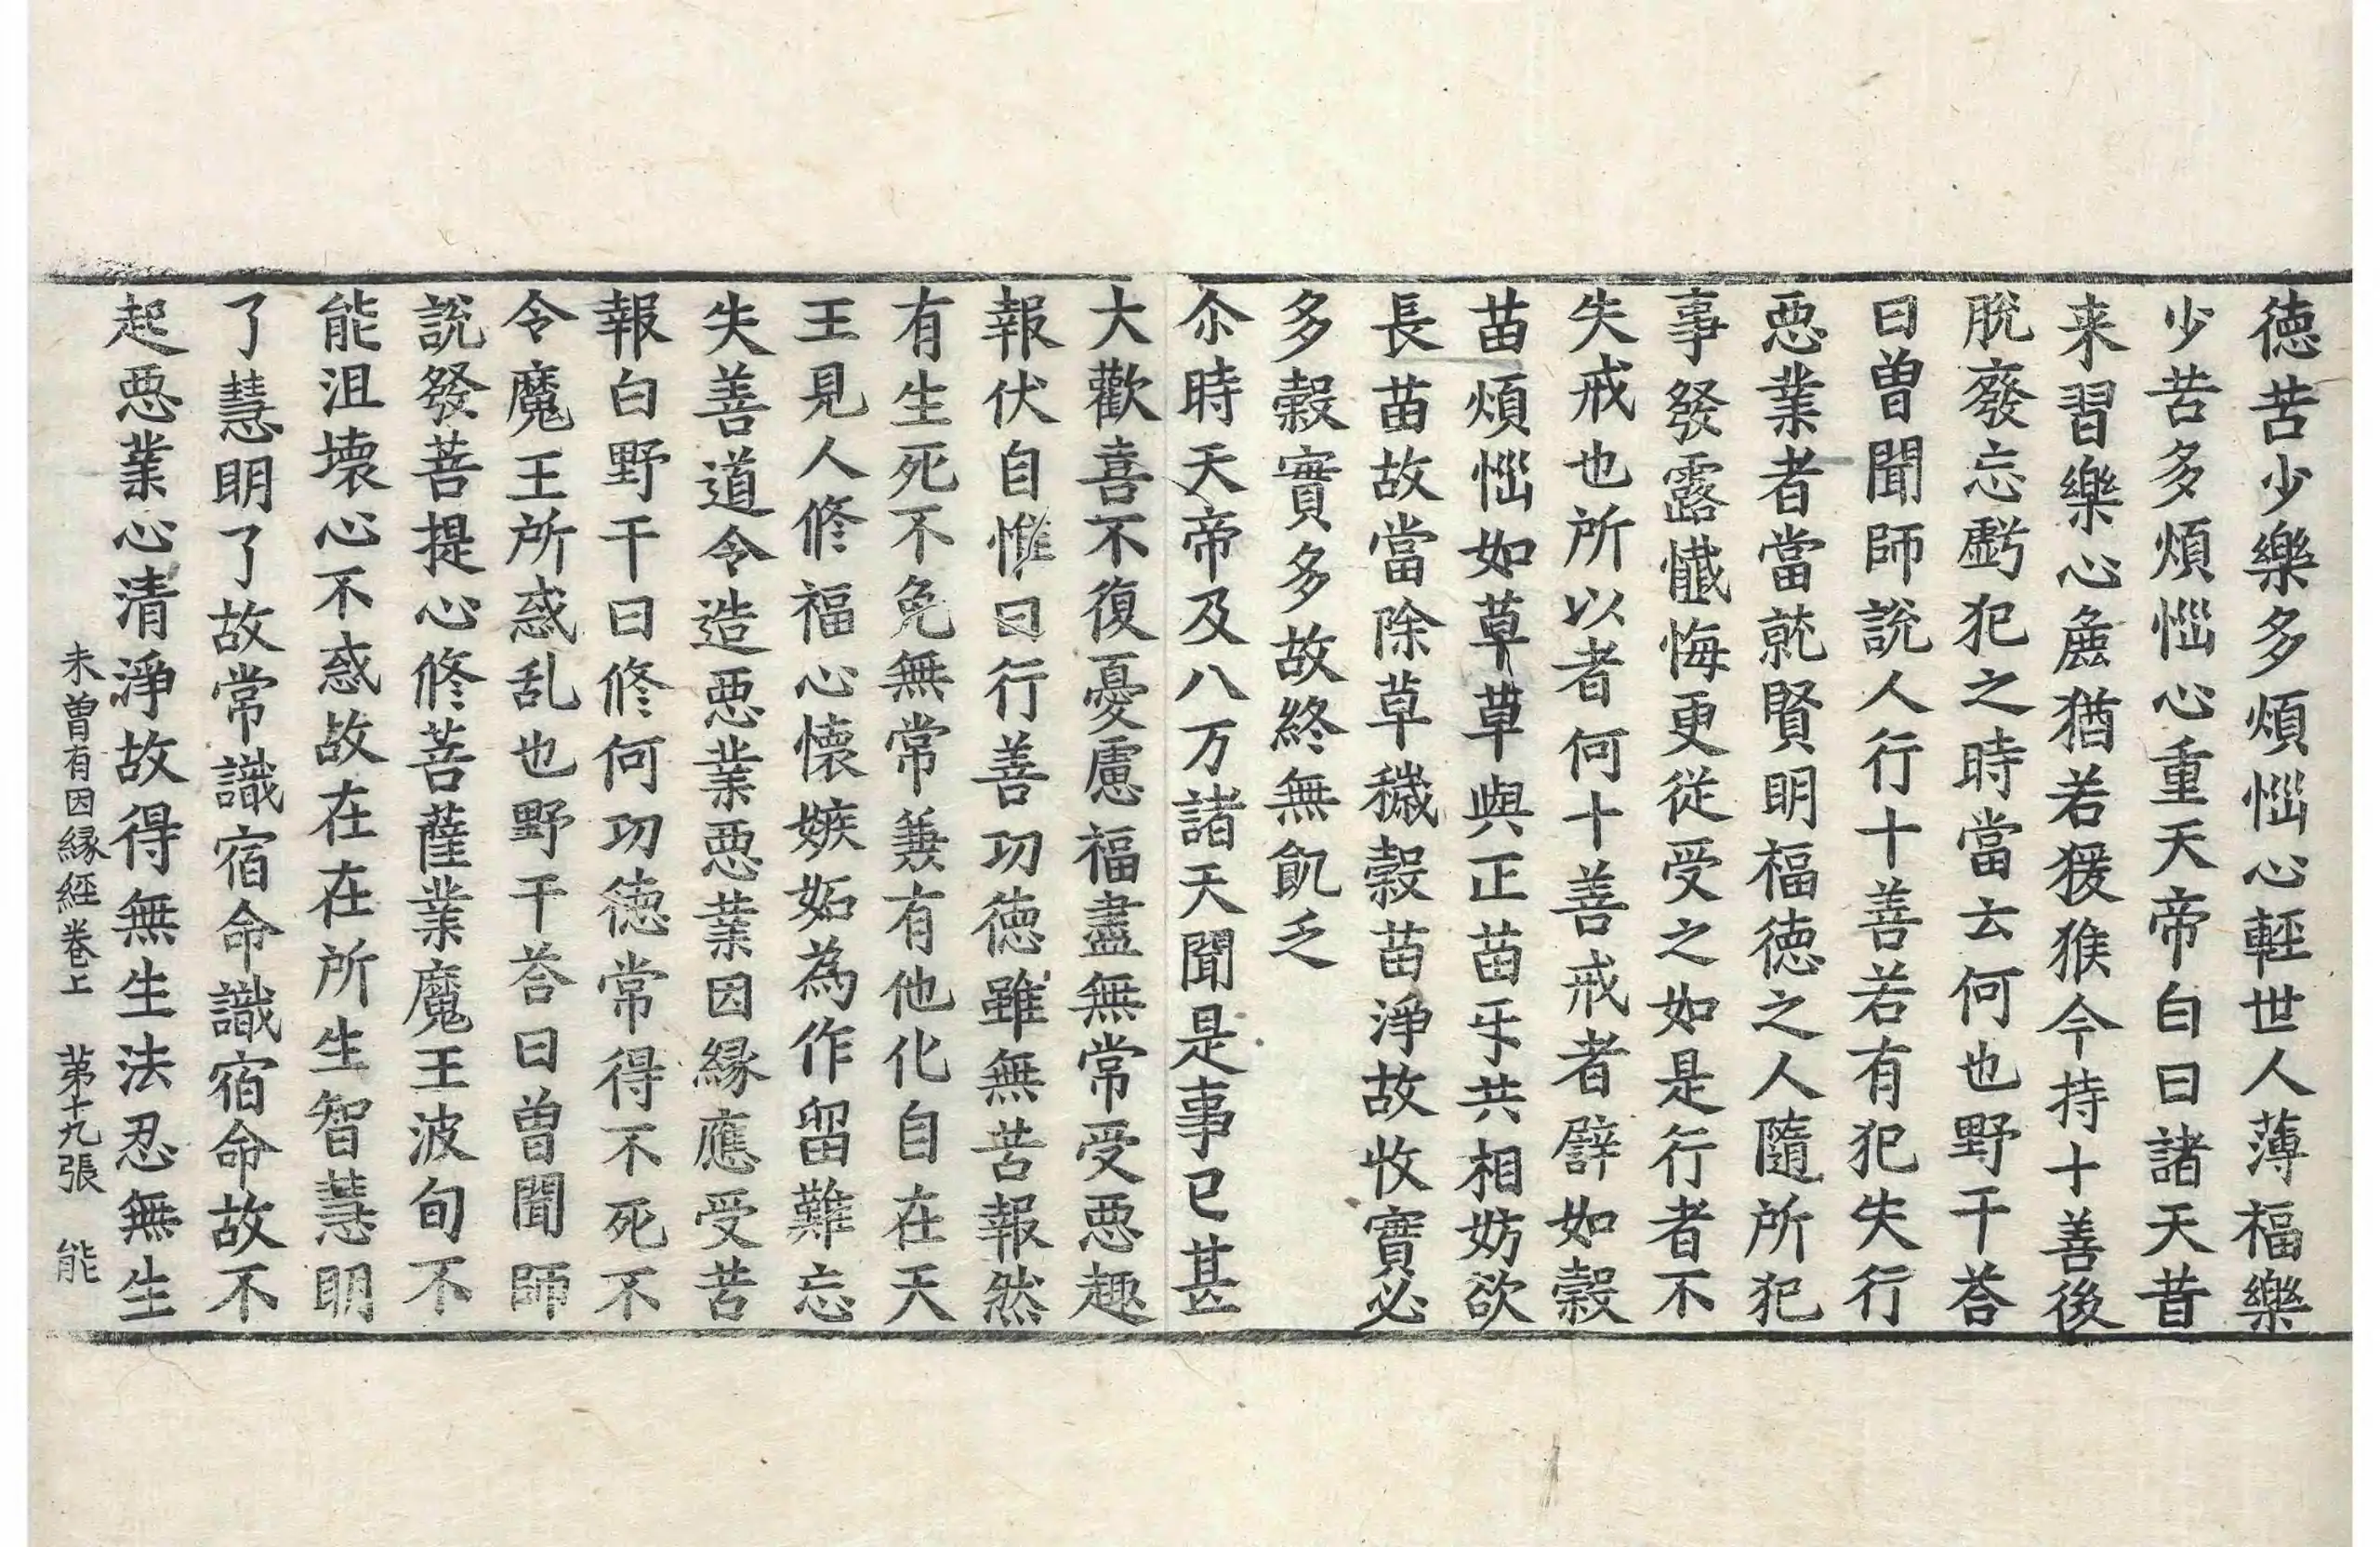 德苦少樂多煩惱心輕世人薄福樂
少苦多煩惱心重天帝白曰諸天昔
来習樂心麁猶若猨猴今持十善後
脫廢忘虧犯之時當云何也野干荅
曰曾聞師說人行十善若有犯失行
惡業者當就賢明福德之人隨所犯
事發露懺悔更從受之如是行者不
失戒也所以者何十善戒者譬如穀
苗煩惱如草草與正苗㸦共相妨欲
長苗故當除草穢穀苗淨故收實必
多穀實多故終無飢乏
尒時天帝及八万諸天聞是事已甚
大歡喜不復憂慮福盡無常受惡趣
報伏自惟曰行善功德雖無苦報然
有生死不免無常兼有他化自在天
王見人修福心懐嫉妬為作留難忘
失善道令造惡業惡業因緣應受苦
報白野干曰修何功德常得不死不
令魔王所惑乱也野干荅曰曾聞師
說發菩提心修菩薩業魔王波旬不
能沮壞心不惑故在在所生智慧明
了慧明了故常識宿命識宿命故不
起惡業心清淨故得無生法忍無生
未曾有因緣經卷上 苐十九張 能